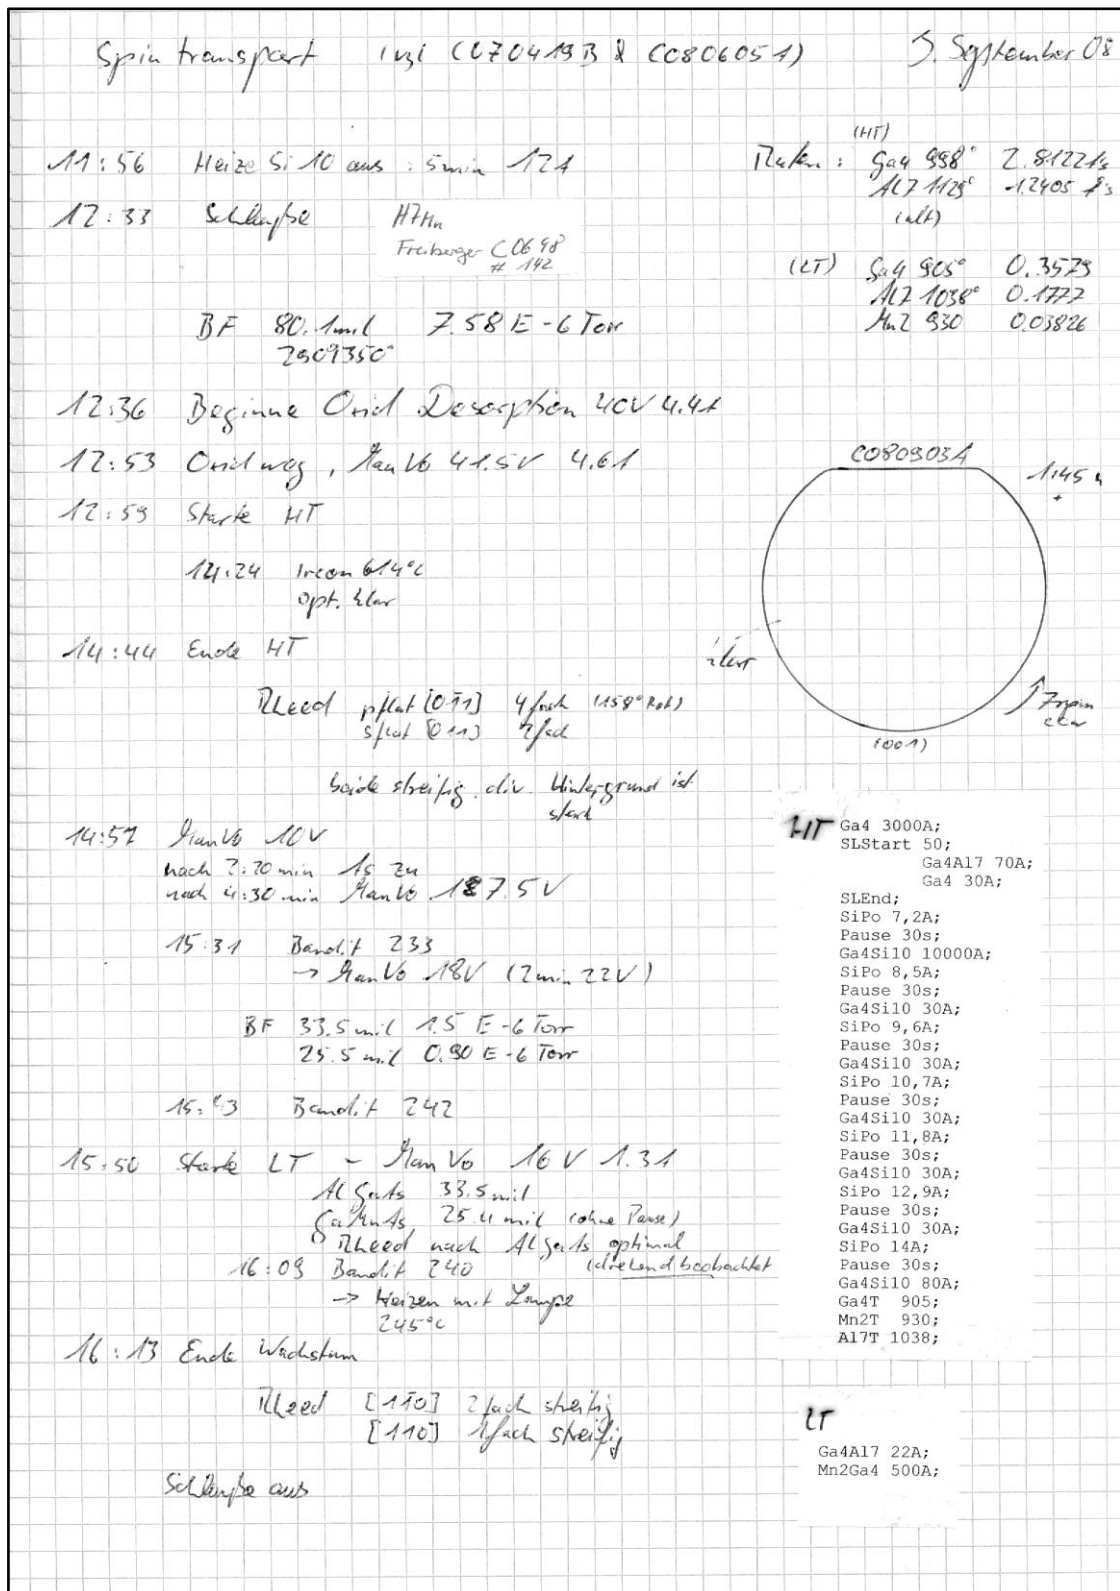 Spin transport (C070419B & C080605A) September 08
11:56 Heize Si 10 aus : 5min 12A
12:33 Schleuße
Freiberger C0698
# 142
BF 80.1mil 7.58 E-6 Torr
12:36 Beginne Oxid Desorption 40V 4.4A
12:53 Oxid weg, ManVo 41.5V 4.6A
12:59 Starte HT
14:24 Ircon 614°C
opt. klar
14:44 Ende HT
Rheed pflat [0-11] 4fach (158° Rot)
sflat [011] 2fach
beide streifig, div. Hintergrund ist
stark
14:57 ManVo 10V
nach 2:20 min As zu
nach 4:30 min ManVo 17.5V
15:31 Bandit 233
→ ManVo 18V (2min 22V)
BF 33.5 mil 1.5 E-6 Torr
25.5 mil 0.90 E-6 Torr
Bandit 242
15:50 Starte LT - ManVo 16V 1.3A
AlGaAs 33.5mil
GaMnAs 25.4 mil (ohne Pause)
Rheed nach AlGaAs optimal
(drehend beobachtet
16:09 Bandit 240
→ Heizen mit Lampe
245°C
16:13 Ende Wachstum
Rheed [1-10] 2fach streifig
[110] 1fach streifig
Schleuße aus
(HT)
Raten: Ga4 998° 2.8122 Å/s
Al7 1129° 1.2405 Å/s
(alt)
(LT) Ga4 905° 0.3579
Al7 1038° 0.1777
Mn2 930 0.03826
C080903A
klar
(001)
HT
Ga4 3000A;
SLStart 50;
Ga4Al7 70A;
Ga4 30A;
SLEnd;
SiPo 7,2A;
Pause 30s;
Ga4Si10 10000A;
SiPo 8,5A;
Pause 30s;
Ga4Si10 30A;
SiPo 9,6A;
Pause 30s;
Ga4Si10 30A;
SiPo 10,7A;
Pause 30s;
Ga4Si10 30A;
SiPo 11,8A;
Pause 30s;
Ga4Si10 30A;
SiPo 12,9A;
Pause 30s;
Ga4Si10 30A;
SiPo 14A;
Pause 30s;
Ga4Si10 80A;
Ga4T 905;
Mn2T 930;
Al7T 1038;
LT
Ga4Al7 22A;
Mn2Ga4 500A;